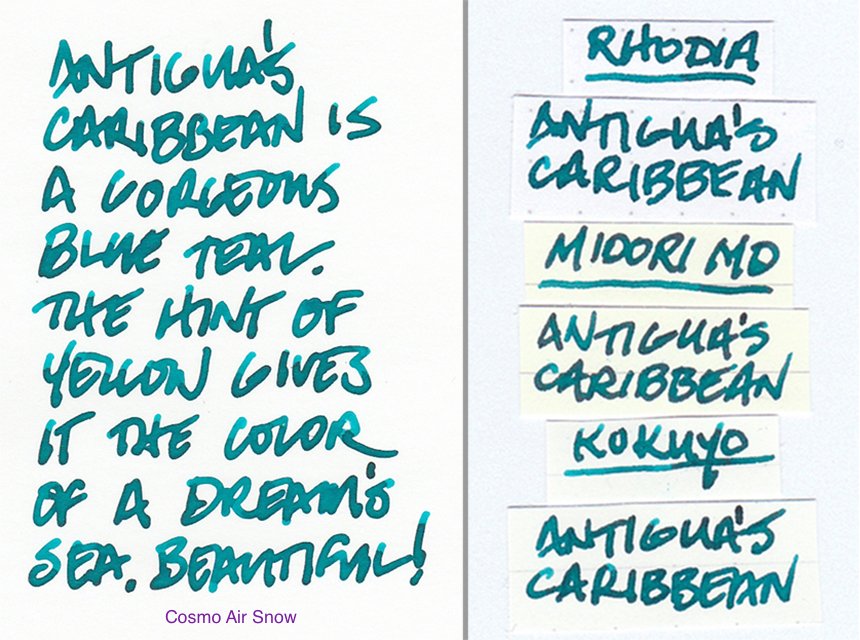 ANTIGUA'S
CARIBBEAN IS
A GORGEOUS
BLUE TEAL.
THE HINT OF
YELLOW GIVES
IT THE COLOR
OF A DREAM'S
SEA. BEAUTIFUL!
Cosmo Air Snow
RHODIA
ANTIGUA'S
CARIBBEAN
MIDORI MD
ANTIGUA'S
CARIBBEAN
KOKUYO
ANTIGUA'S
CARIBBEAN